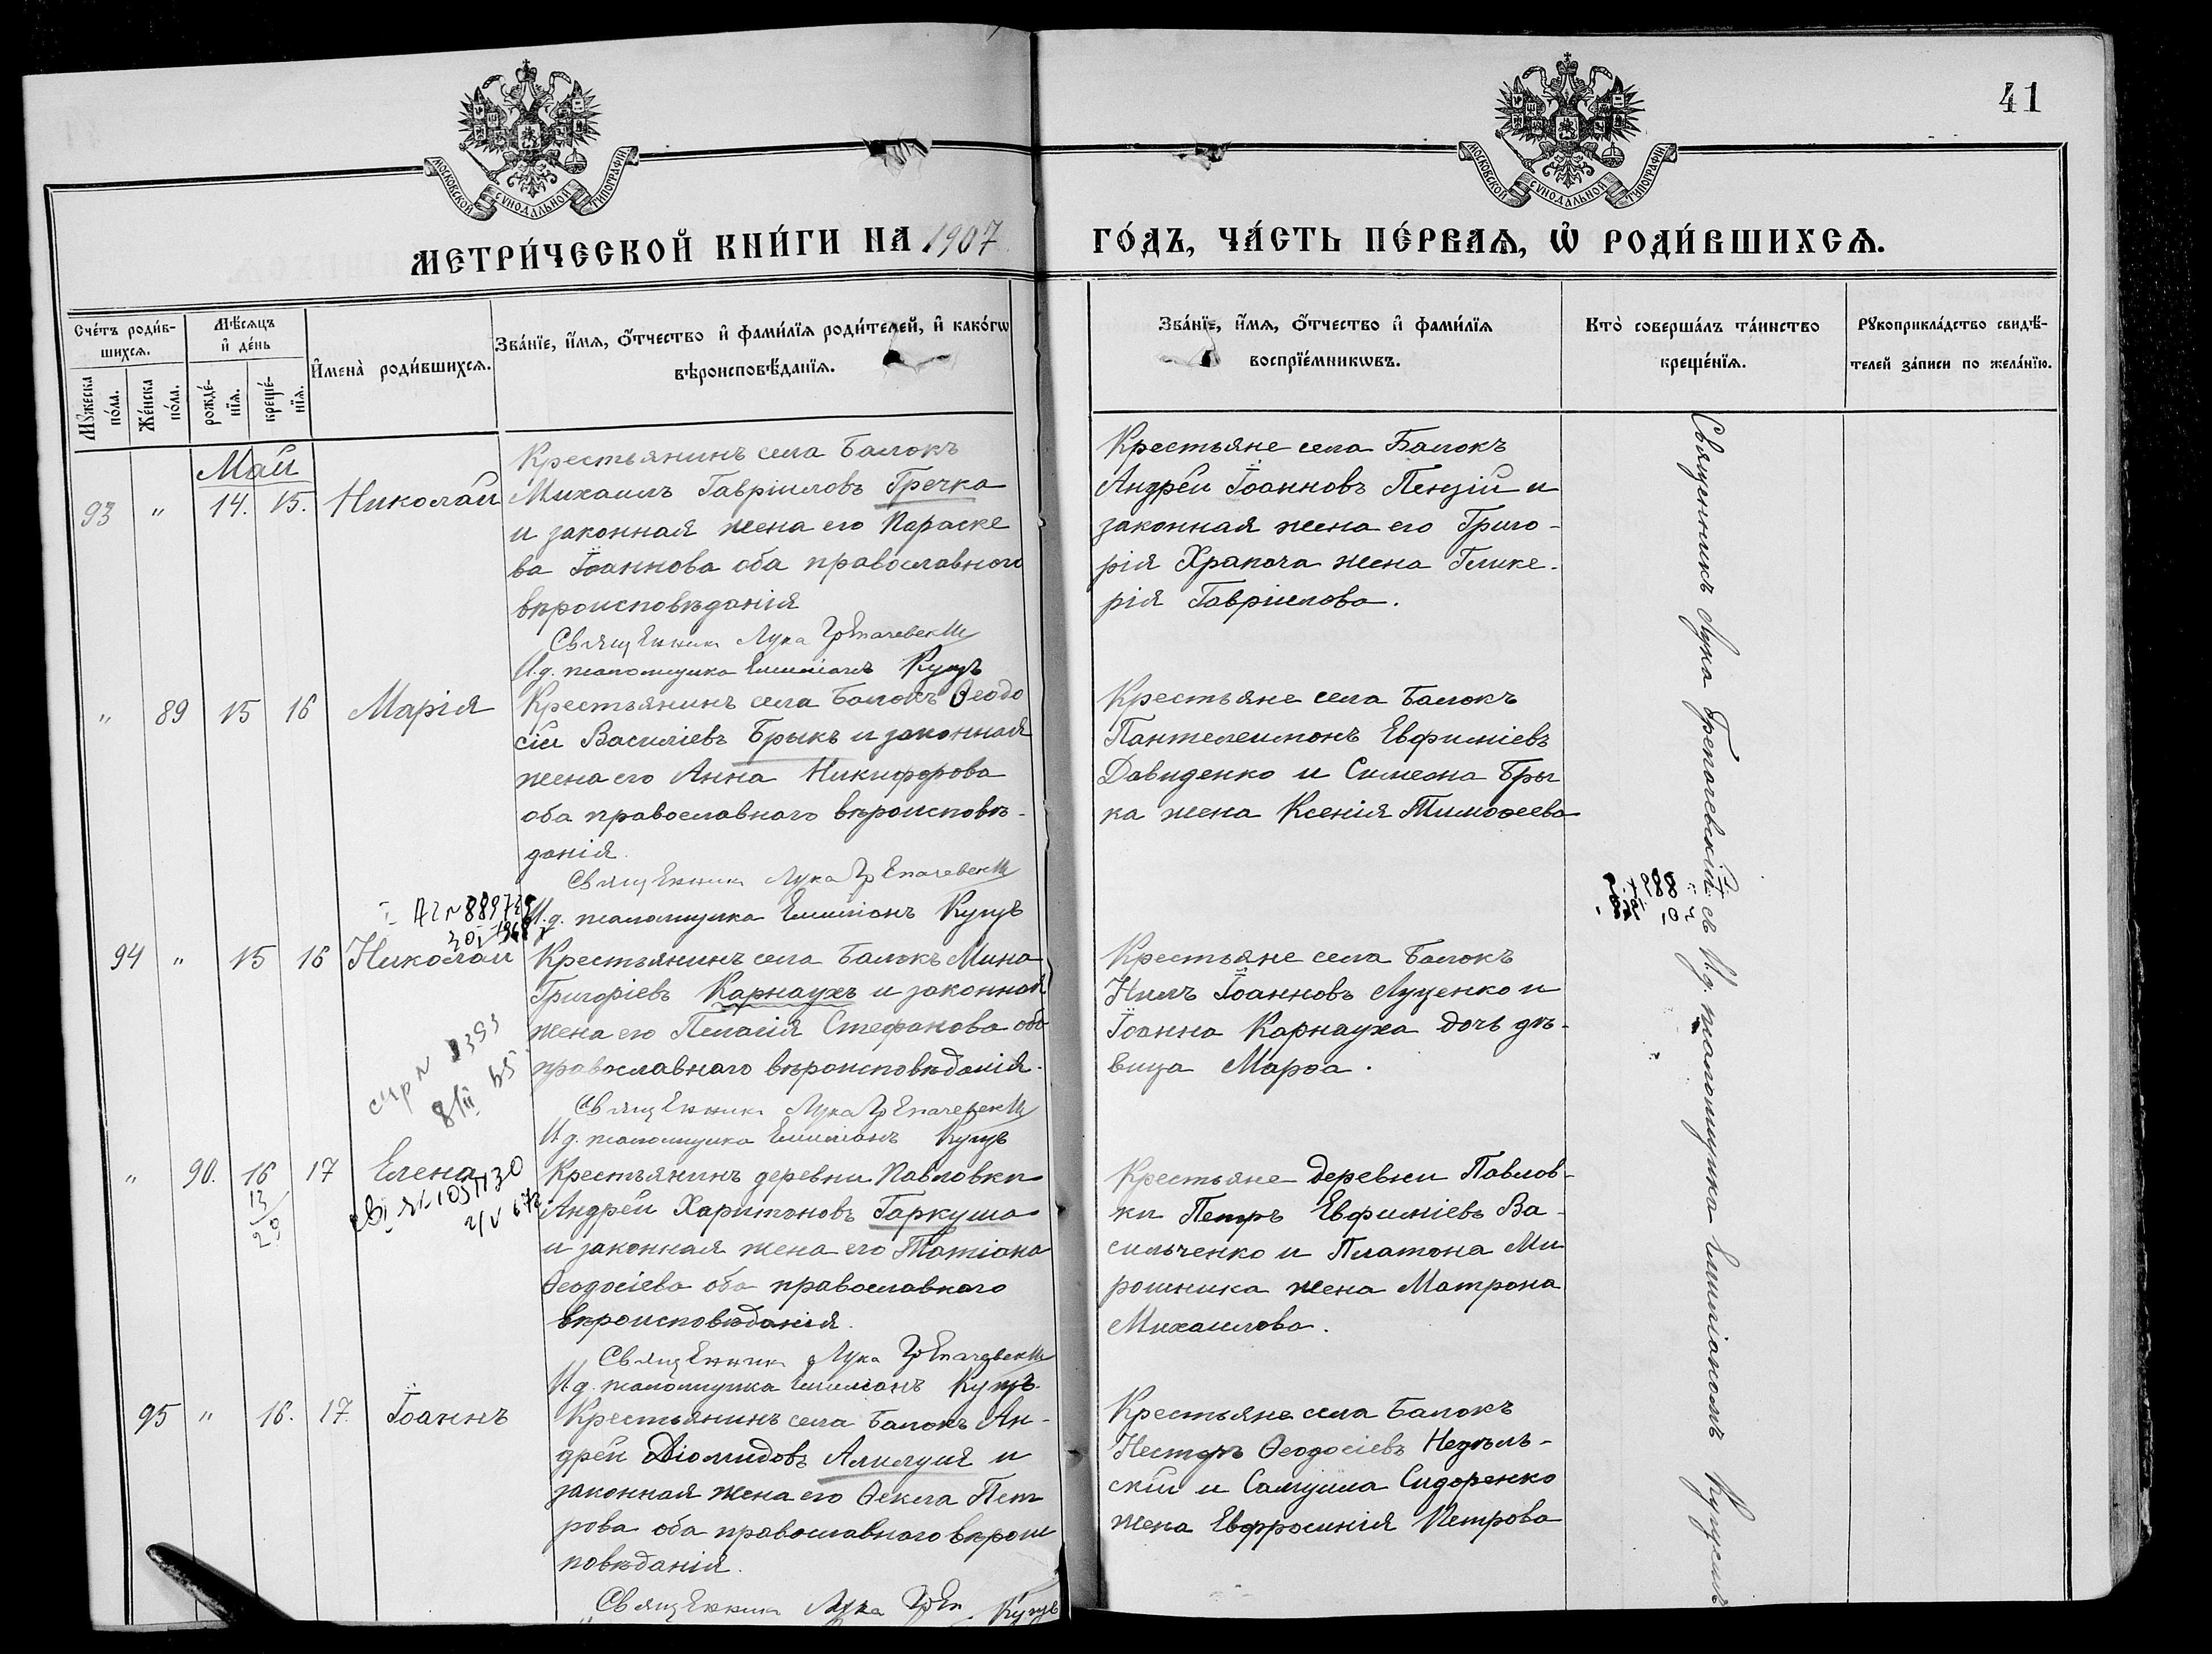 41
МОСКОВСКОЙ СѴНОДАЛЬНОЙ ТИПОГРАФІИ
МОСКОВСКОЙ СѴНОДАЛЬНОЙ ТИПОГРАФІИ
МЕТРИ́ЧЕСКОЙ КНИ́ГИ НА 1907
ГО́ДЪ, ЧА́СТЬ ПЕ́РВАѦ, Ѽ РОДИ́ВШИХСѦ.
Сче́тъ роди́в-
шихсѧ.
Мѣ́сѧцъ
и҆ де́нь
Мꙋ́жеска
по́ла.
Же́нска
по́ла.
рожде́-
нїѧ.
креще́-
нїѧ.
И҆мена̀ роди́вшихсѧ.
Зва́нїе, и҆́мѧ, ѻ҆́тчество и҆ фамѝлїѧ роди́телей, и҆ како́гѡ
вѣроисповѣ́данїѧ.
Зва́нїе, и҆́мѧ, ѻ҆́тчество и҆ фами́лїѧ
воспрїе́мникѡвъ.
Кто̀ соверша́лъ та́инство
креще́нїѧ.
Рꙋкоприкла́дство свидѣ́-
телей за́писи по жела́нїю.
Май
93 " 14. 15. Николай
Крестьянинъ села Балокъ
Михаилъ Гавріиловъ Гречка
и законная жена его Параске
ва Іоаннова оба православного
вѣроисповѣданія
Священник Лука Грепачевскій
И.д. псаломщика Емиліанъ Куцъ
Крестьяне села Балокъ
Андрей Іоанновъ Пензій и
законная жена его Григо-
рія Храпача жена Глике-
рія Гавріилова.
" 89 15 16 Марія
Крестьянинъ села Балокъ Ѳеодо
сій Василіевъ Брыкъ и законная
жена его Анна Никифорова
оба православнаго вѣроисповѣ-
данія.
Священник Лука Грепачевскій
И.д. псаломщика Емиліанъ Куцъ
Крестьяне села Балокъ
Пантелеимонъ Евфиміевъ
Давиденко и Симеона Бры
ка жена Ксенія Тимоѳеева
94 " 15 16 Николай
Крестьянинъ села Балокъ Мина
Григоріевъ Карнаухъ и законная
жена его Пелагія Стефанова оба
православнаго вѣроисповѣданія.
Священник Лука Грепачевскій
И.д. псаломщика Емиліанъ Куцъ
Крестьяне села Балокъ
Нилъ Іоанновъ Луценко и
Іоанна Карнауха дочь дѣ-
вица Марѳа.
" 90. 16 17 Елена
13
20
Крестьянинъ деревни Павловки
Андрей Харитоновъ Гаркуша
и законная жена его Татіана
Ѳеодосіева оба православного
вѣроисповѣданія.
Священник Лука Грепачевскій
И.д. псаломщика Емиліанъ Куцъ.
Крестьяне деревни Павлов-
ки Петръ Евфиміевъ Ва-
сильченко и Платона Ми
рошника жена Матрона
Михаилова.
95 " 16. 17. Іоаннъ
Крестьянинъ села Балокъ Ан-
дрей Діомидовъ Алилуія и
законная жена его Ѳекла Пет
рова оба православнаго вѣроис
повѣданія.
Священник Лука Греп Куцъ
Крестьяне села Балокъ
Несторъ Ѳеодосіевъ Недѣль-
скій и Самуила Сидоренко
жена Евфросинія Петрова
Священникъ Лука Грепачевскій съ И.д. псаломщика Емиліаномъ Куцемъ